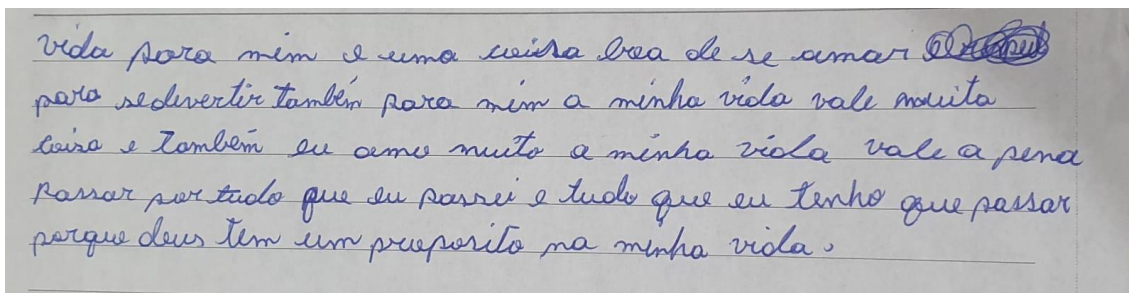 vida para mim e uma coisa boa de se amar
para sedivertir também para mim a minha vida vale muita
coisa e também eu amo muito a minha vida vale a pena
passar por tudo que eu passei e tudo que eu tenho que passar
porque deus tem um proposito na minha vida.